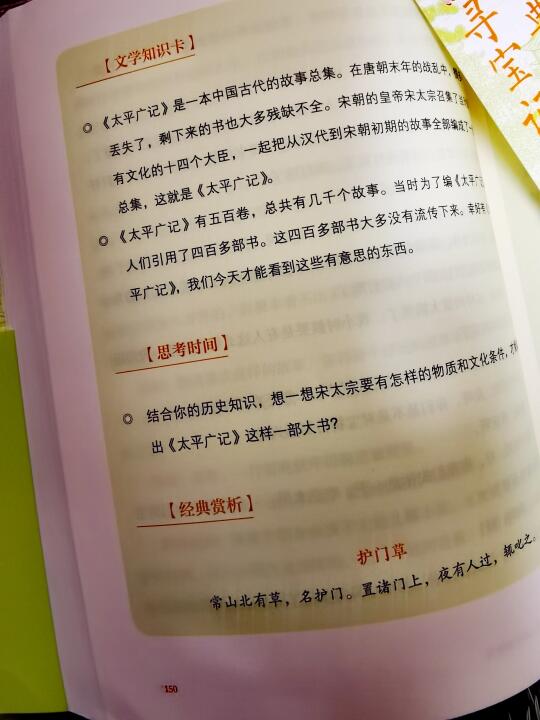 【文学知识卡】
◎ 《太平广记》是一本中国古代的故事总集。在唐朝末年的战乱中，
丢失了，剩下来的书也大多残缺不全。宋朝的皇帝宋太宗召集了
有文化的十四个大臣，一起把从汉代到宋朝初期的故事全部编成了一
总集，这就是《太平广记》。
◎ 《太平广记》有五百卷，总共有几千个故事。当时为了编《太平广记
人们引用了四百多部书。这四百多部书大多没有流传下来。幸好有
平广记》，我们今天才能看到这些有意思的东西。
【思考时间】
◎ 结合你的历史知识，想一想宋太宗要有怎样的物质和文化条件，才
出《太平广记》这样一部大书？
【经典赏析】
护门草
常山北有草，名护门。置诸门上，夜有人过，辄叱之。
150
寻宝记
典